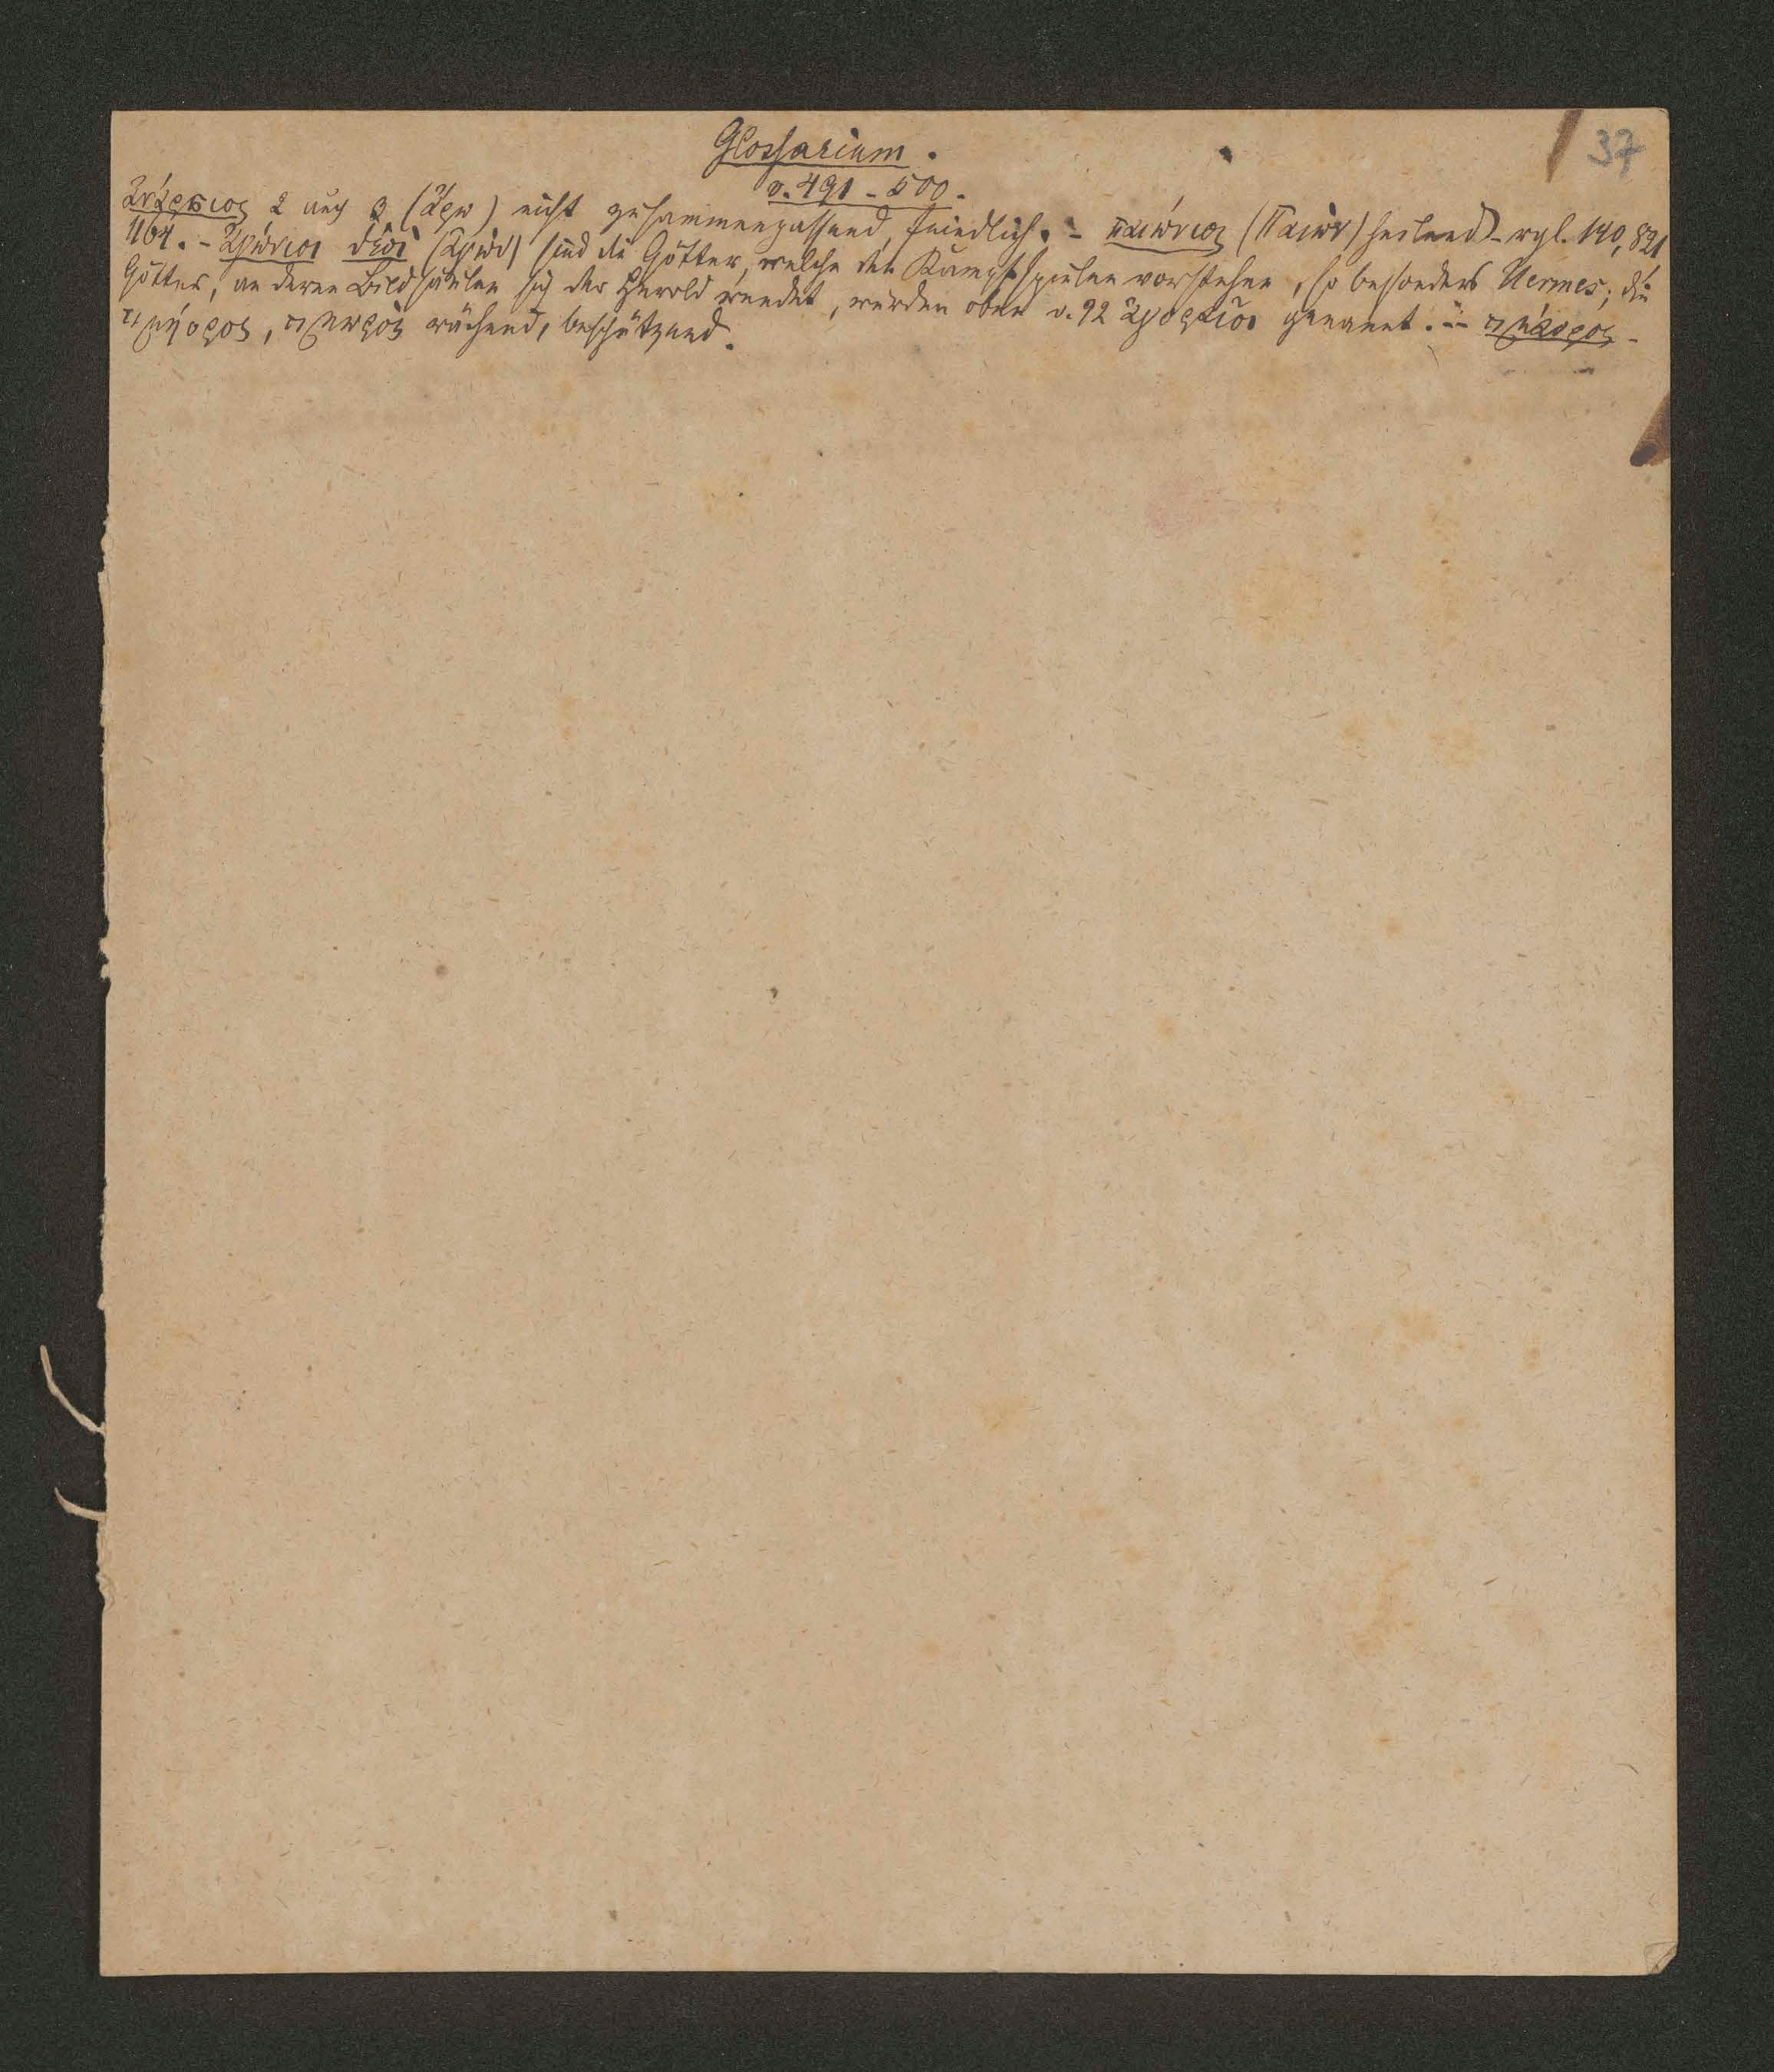 Glossarium.
37
v. 491 - 500.
ἀνάρσιος 2 auch 3 (ἄρω) nicht zusammenpassend, feindlich. - παιώνιος (Παιών) heilend - vgl. 140, 821
1164. - ἀγώνιοι θεοὶ (ἀγών) sind die Götter, welche den Kampfspielen vorstehen, so besonders Hermes; die
Götter, an deren Bildsäulen sich der Herold wendet, wurden oben v. 92 ἀγοραῖοι genannt. - τιμάορος -
τιμήορος, τιμωρὸς rächend, beschützend.